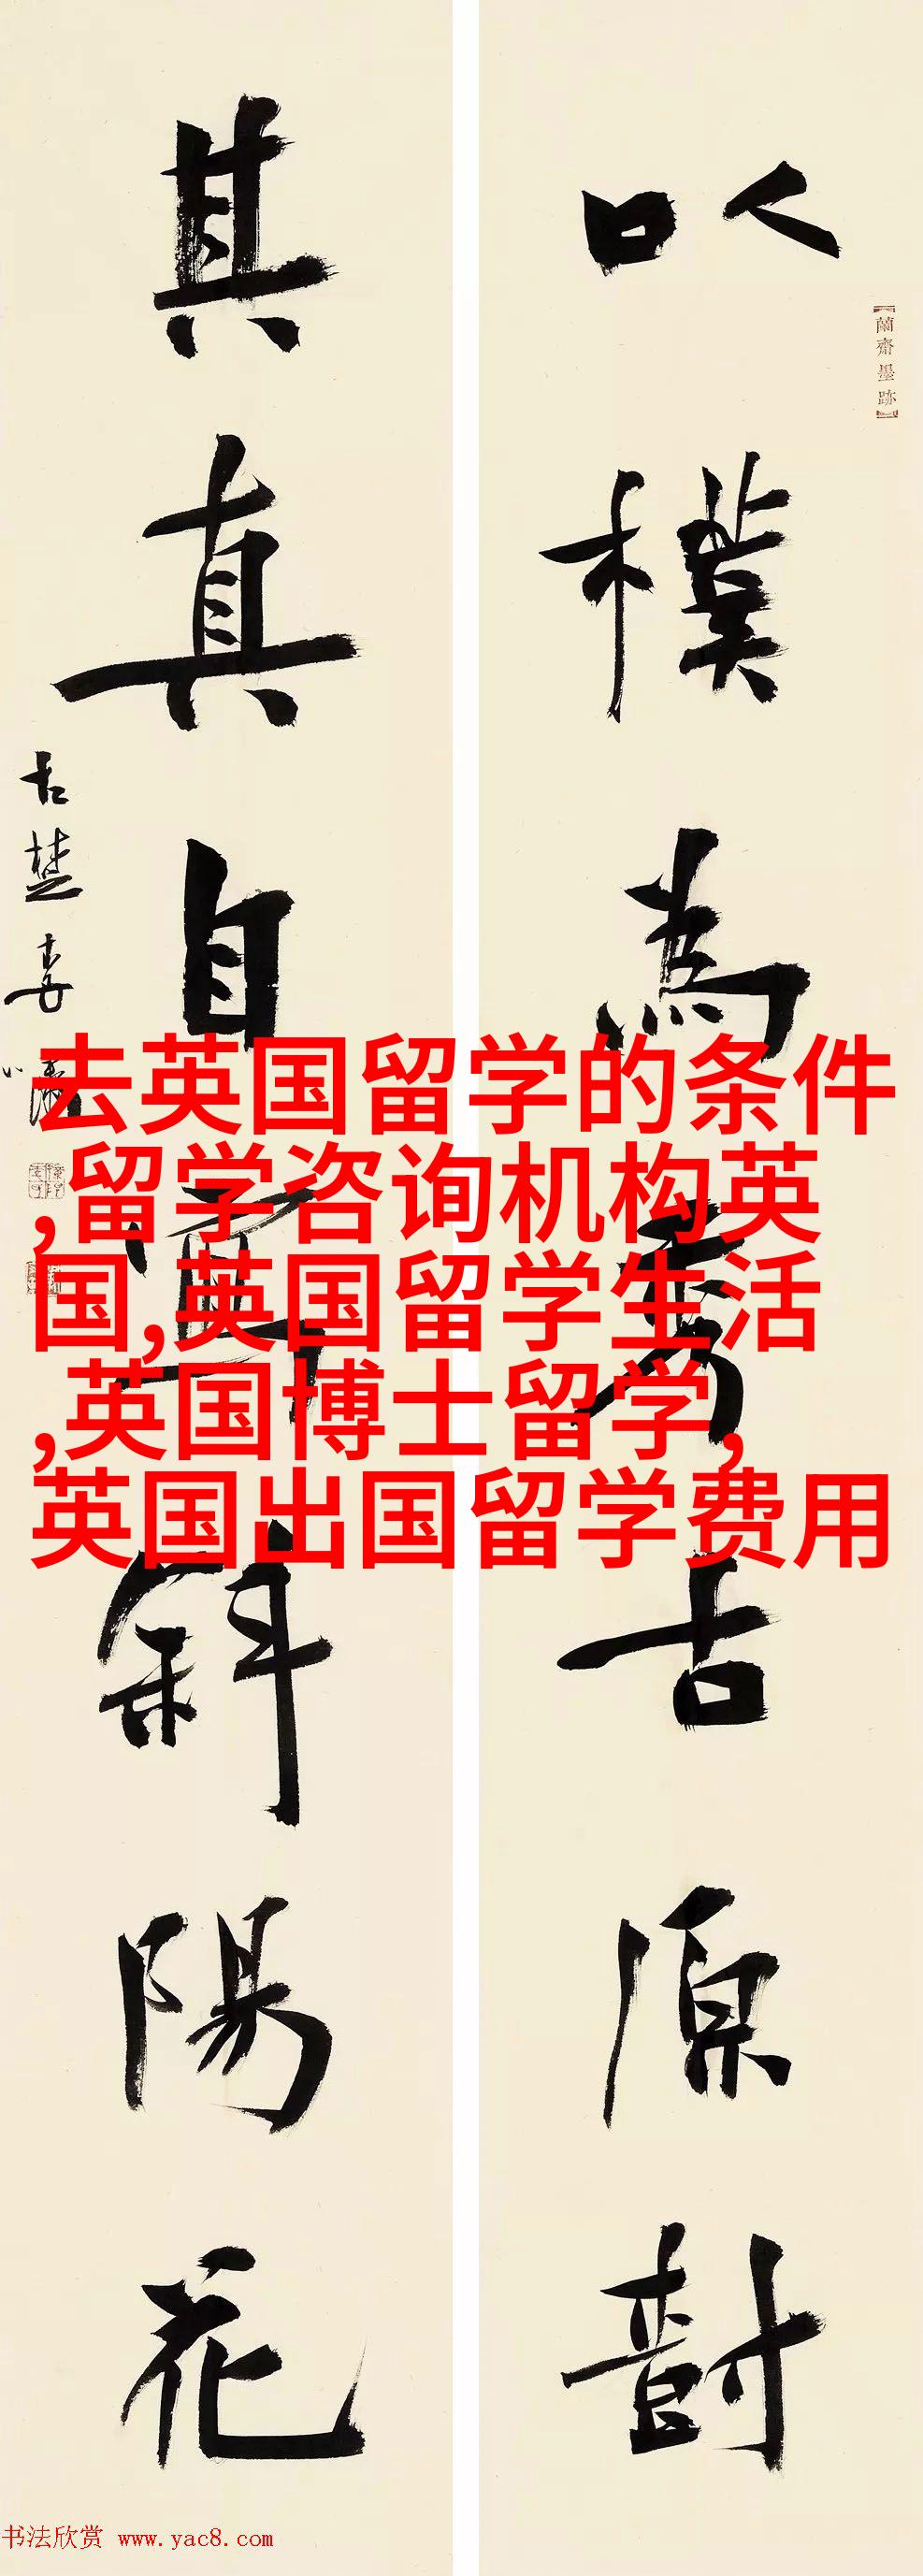 以樸為秀古原樹
其真自寫斜陽花
古楚李瀟
【蘭齋墨跡】
去英国留学的条件
,留学咨询机构英
国,英国留学生活
,英国博士留学,
英国出国留学费用
书法欣赏 www.yac8.com